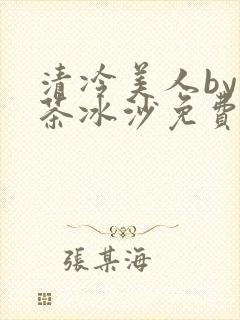 清冷美人by
茶冰沙免費
張某海